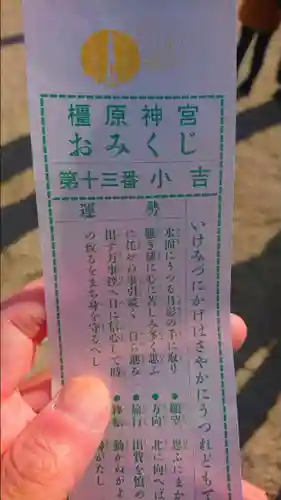 橿原神宮
おみくじ
第十三番 小吉
運勢
いけみづにかげはさやかにうつれども
水面にうつる月影の手に取り
難き様に心に苦しみ多く思ふ
に任せぬ事引続く
出ず万事控へ目に信心して時
の来るをまち身を守るべし
●願望 思ふにまか
●方向 北に向へば
●旅行 出費を慎め
●移転 動かぬがよ
がたし